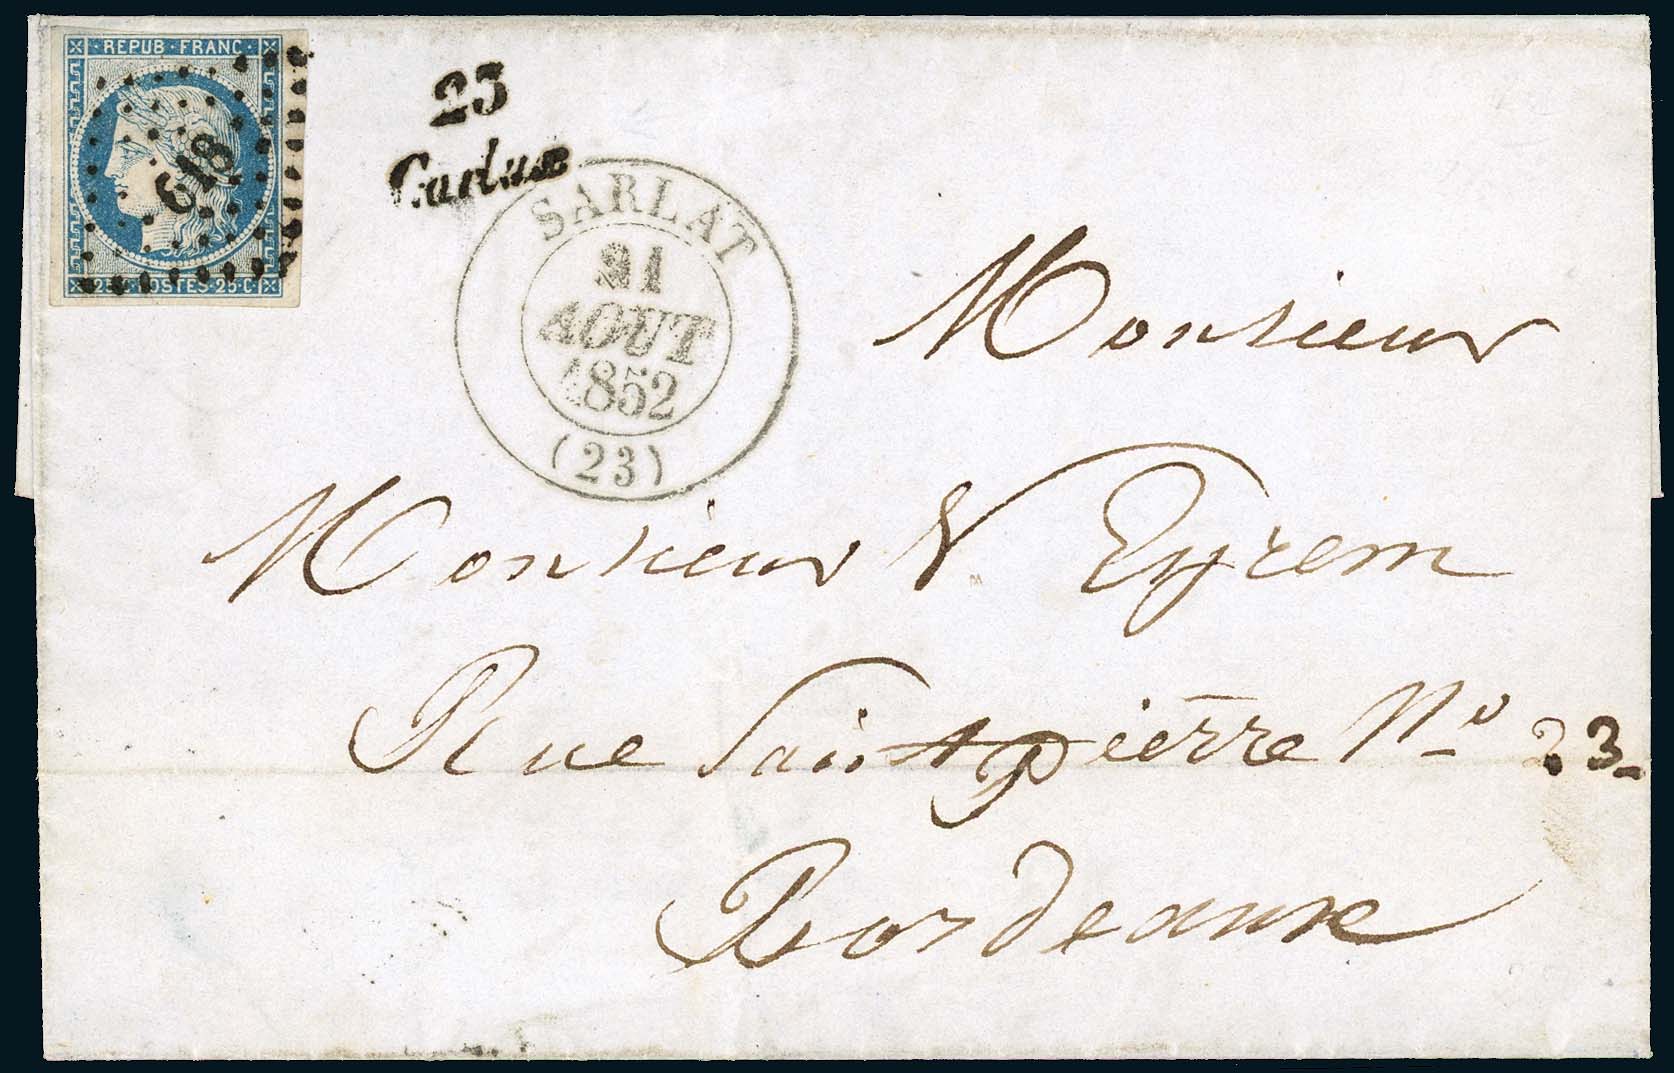 REPUB · FRANC ·
648
25·C·POSTES·25·C·
23
Carlux
SARLAT
21
AOUT
1852
(23)
Monsieur
Monsieur V Eyrem
Rue Saint pierre N° 23
Bordeaux